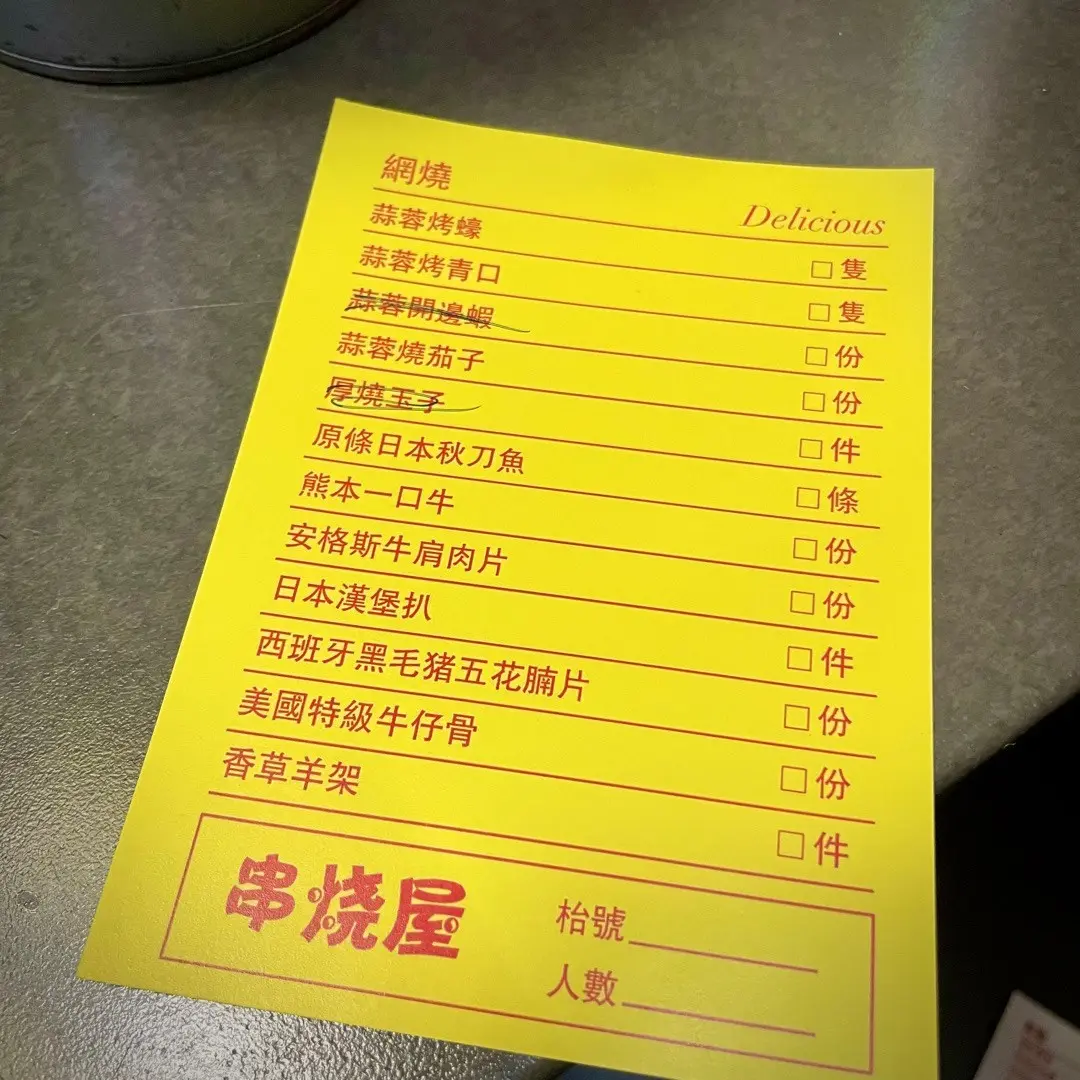 網燒
Delicious
蒜蓉烤蠔 □隻
蒜蓉烤青口 □隻
蒜蓉開邊蝦 □份
蒜蓉燒茄子 □份
厚燒玉子 □件
原條日本秋刀魚 □條
熊本一口牛 □份
安格斯牛肩肉片 □份
日本漢堡扒 □件
西班牙黑毛猪五花腩片 □份
美國特級牛仔骨 □份
香草羊架 □件
串烧屋
枱號
人數